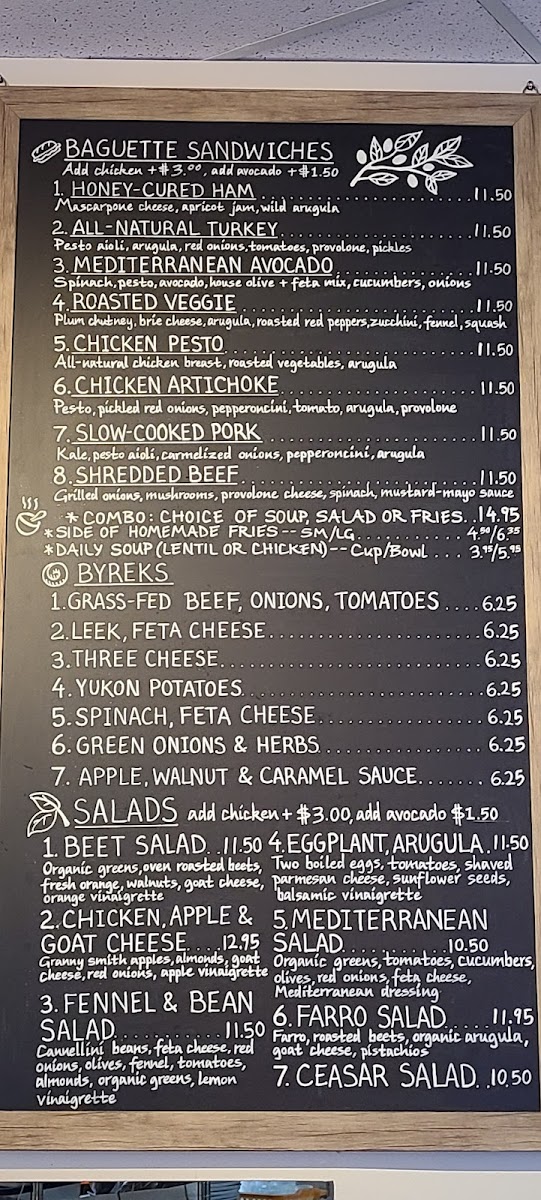 BAGUETTE SANDWICHES
Add chicken +$3.00, add avocado +$1.50
1. HONEY-CURED HAM 11.50
Mascarpone cheese, apricot jam, wild arugula
2. ALL-NATURAL TURKEY 11.50
Pesto aioli, arugula, red onions, tomatoes, provolone, pickles
3. MEDITERRANEAN AVOCADO 11.50
Spinach, pesto, avocado, house olive + feta mix, cucumbers, onions
4. ROASTED VEGGIE 11.50
Plum chutney, brie cheese, arugula, roasted red peppers, zucchini, fennel, squash
5. CHICKEN PESTO 11.50
All-natural chicken breast, roasted vegetables, arugula
6. CHICKEN ARTICHOKE 11.50
Pesto, pickled red onions, pepperoncini, tomato, arugula, provolone
7. SLOW-COOKED PORK 11.50
Kale, pesto aioli, carmelized onions, pepperoncini, arugula
8. SHREDDED BEEF 11.50
Grilled onions, mushrooms, provolone cheese, spinach, mustard-mayo sauce
* COMBO: CHOICE OF SOUP, SALAD OR FRIES.. 14.95
* SIDE OF HOMEMADE FRIES -- SM/LG 4.50/6.35
* DAILY SOUP (LENTIL OR CHICKEN) -- Cup/Bowl ... 3.95/5.95
BYREKS
1. GRASS-FED BEEF, ONIONS, TOMATOES .... 6.25
2. LEEK, FETA CHEESE 6.25
3. THREE CHEESE 6.25
4. YUKON POTATOES 6.25
5. SPINACH, FETA CHEESE 6.25
6. GREEN ONIONS & HERBS 6.25
7. APPLE, WALNUT & CARAMEL SAUCE 6.25
SALADS add chicken + $3.00, add avocado $1.50
1. BEET SALAD.. 11.50
Organic greens, oven roasted beets,
fresh orange, walnuts, goat cheese,
orange vinaigrette
2. CHICKEN, APPLE &
GOAT CHEESE.... 12.95
Granny smith apples, almonds, goat
cheese, red onions, apple vinaigrette
3. FENNEL & BEAN
SALAD 11.50
Cannellini beans, feta cheese, red
onions, olives, fennel, tomatoes,
almonds, organic greens, lemon
vinaigrette
4. EGGPLANT, ARUGULA. 11.50
Two boiled eggs, tomatoes, shaved
parmesan cheese, sunflower seeds,
balsamic vinaigrette
5. MEDITERRANEAN
SALAD 10.50
Organic greens, tomatoes, cucumbers,
olives, red onions, feta cheese,
Mediterranean dressing
6. FARRO SALAD 11.95
Farro, roasted beets, organic arugula,
goat cheese, pistachios
7. CEASAR SALAD.. 10.50